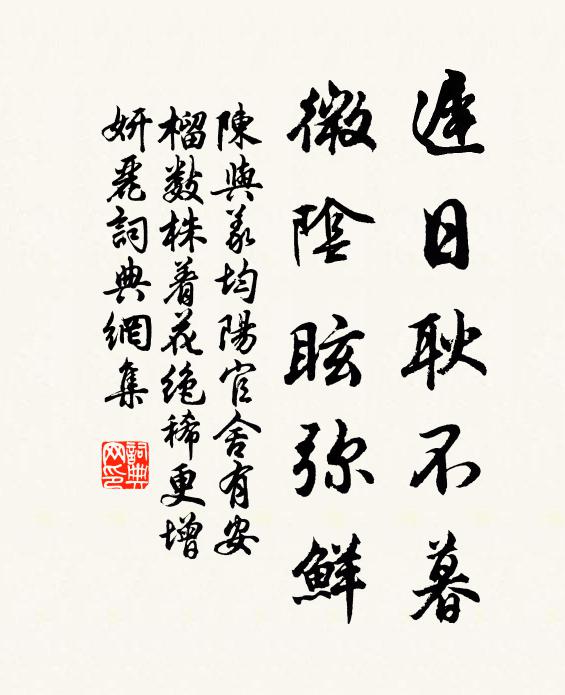 遲日耿不暮
微陰眩弥鮮
陳與義均陽官舍有安
榴数株着花绝稀更增
妍丽詞典網集
詞典网印